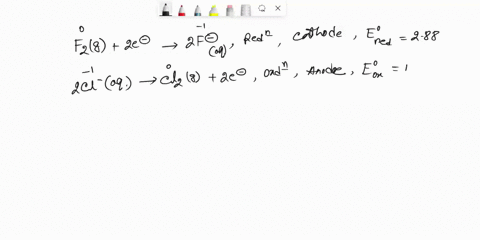 0 -1
F₂(g) + 2e⊖ → 2F⊖(aq), Redⁿ, Cathode, E⁰red = 2.88
-1 0
2Cl⁻(aq) → Cl₂(g) + 2e⊖, oxdⁿ, Anode, E⁰ox = 1